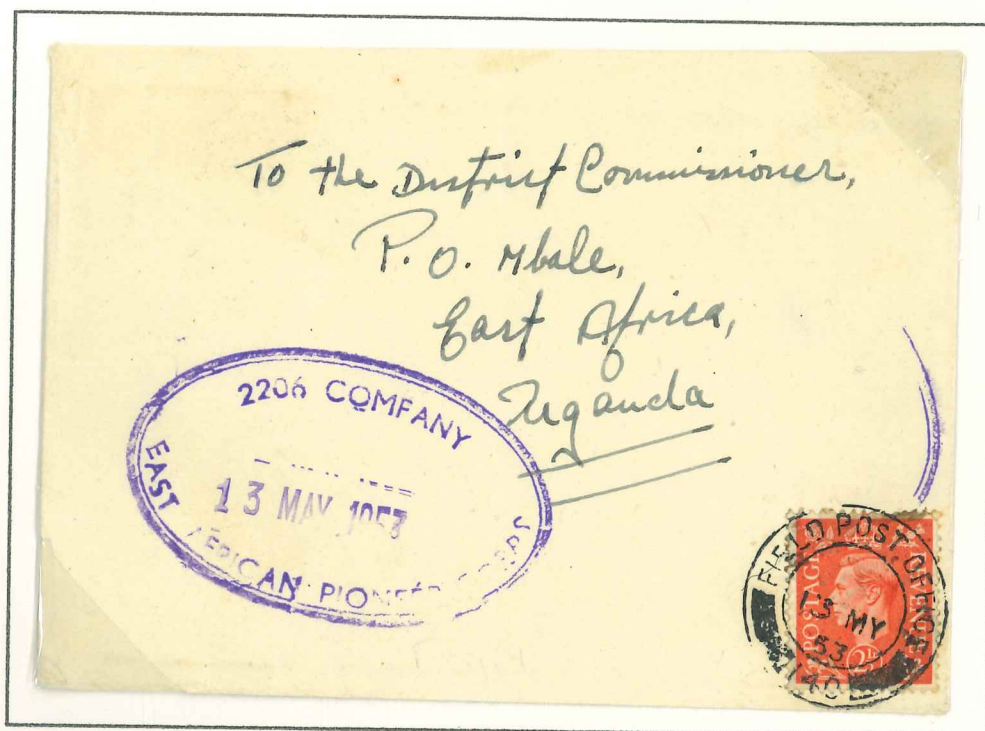 To the District Commissioner,
P.O. Mbale,
East Africa,
Uganda
2206 COMPANY
13 MAY 1953
EAST AFRICAN PIONEER CORPS
FIELD POST OFFICE
13 MY
53
POSTAGE